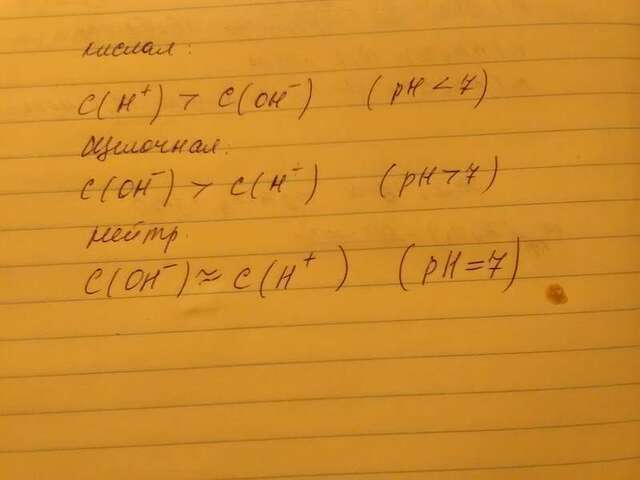 кислая:
C(H⁺) > C(OH⁻) (pH < 7)
Щелочная:
C(OH⁻) > C(H⁻) (pH > 7)
нейтр.
C(OH⁻) ≈ C(H⁺) (pH = 7)